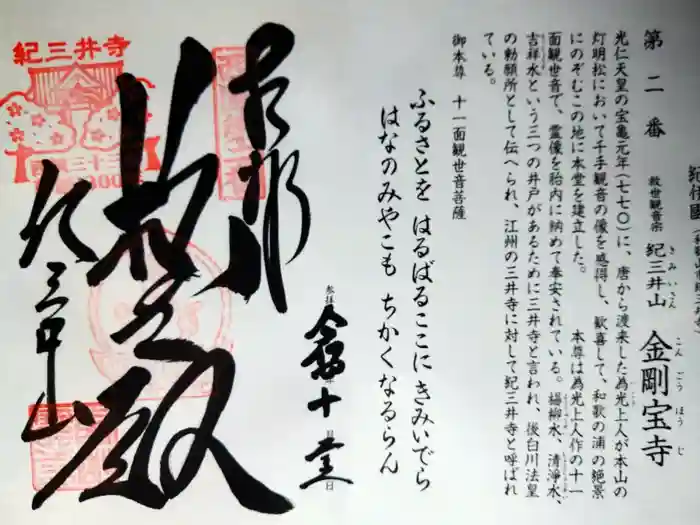 第二番
救世観音宗 紀三井山 金剛宝寺
きみいさん こんごうほうじ
光仁天皇の宝亀元年(七七〇)に、唐から渡来した為光上人が本山の
灯明松において千手観音の像を感得し、歓喜して、和歌の浦の絶景
にのぞむこの地に本堂を建立した。 本尊は為光上人作の十一
面観世音で、霊像を胎内に納めて奉安されている。楊柳水、清浄水、
吉祥水という三つの井戸があるために三井寺と言われ、後白川法皇
の勅願所として伝へられ、江州の三井寺に対して紀三井寺と呼ばれ
ている。
御本尊 十一面観世音菩薩
ふるさとを はるばるここに きみいでら
はなのみやこも ちかくなるらん
参拝 令和 十 日
奉拝
救世殿
紀三井山
紀三井寺